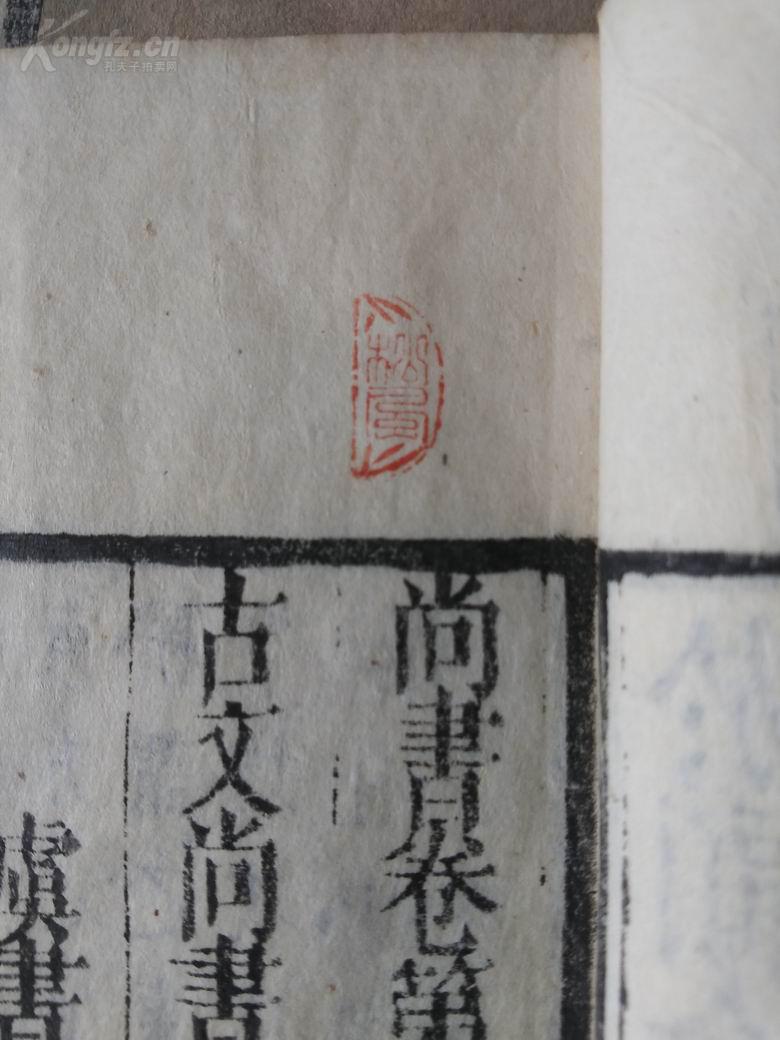 Kongfz.cn
孔夫子拍卖网
尚書卷第
古文尚書
虞書